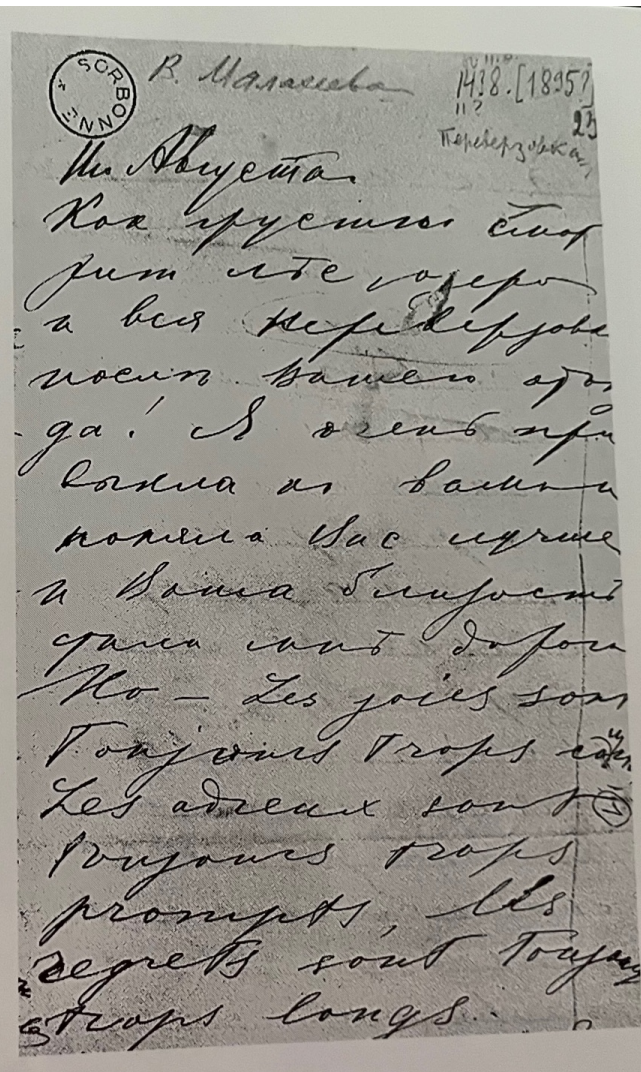 SORBONNE *
В. Малашева
1438. [1895?]
11?
23
Переверзовка
Августа.
Как грустно смот
рит лѣс озеро
и вся Переверзовк
послѣ Вашего отъѣз
да! Я очень при
выкла къ вамъ и
поняла Вас лучше
и Ваша близость
стала мнѣ дорога
Но — Les joies sont
Toujours trops
Les adieux sont
toujours trops
prompts, Les
regrets sont Toujours
trops longs..